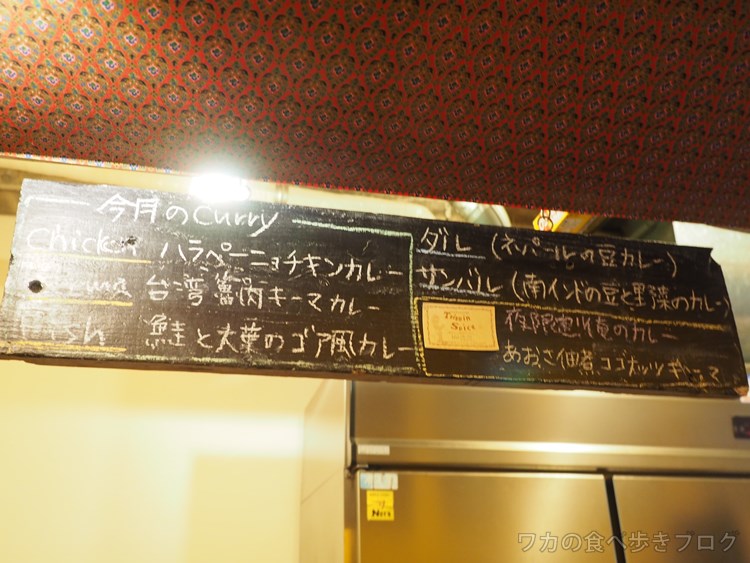 今月のCurry
Chicken ハラペーニョチキンカレー
台湾魯肉キーマカレー
Fish 鮭と大葉のゴア風カレー
ダル(ネパールの豆カレー)
サンバル(南インドの豆と野菜のカレー)
Spice
夜限定 のカレー
あおさ佃煮ココナッツキーマ
ワカの食べ歩きブログ